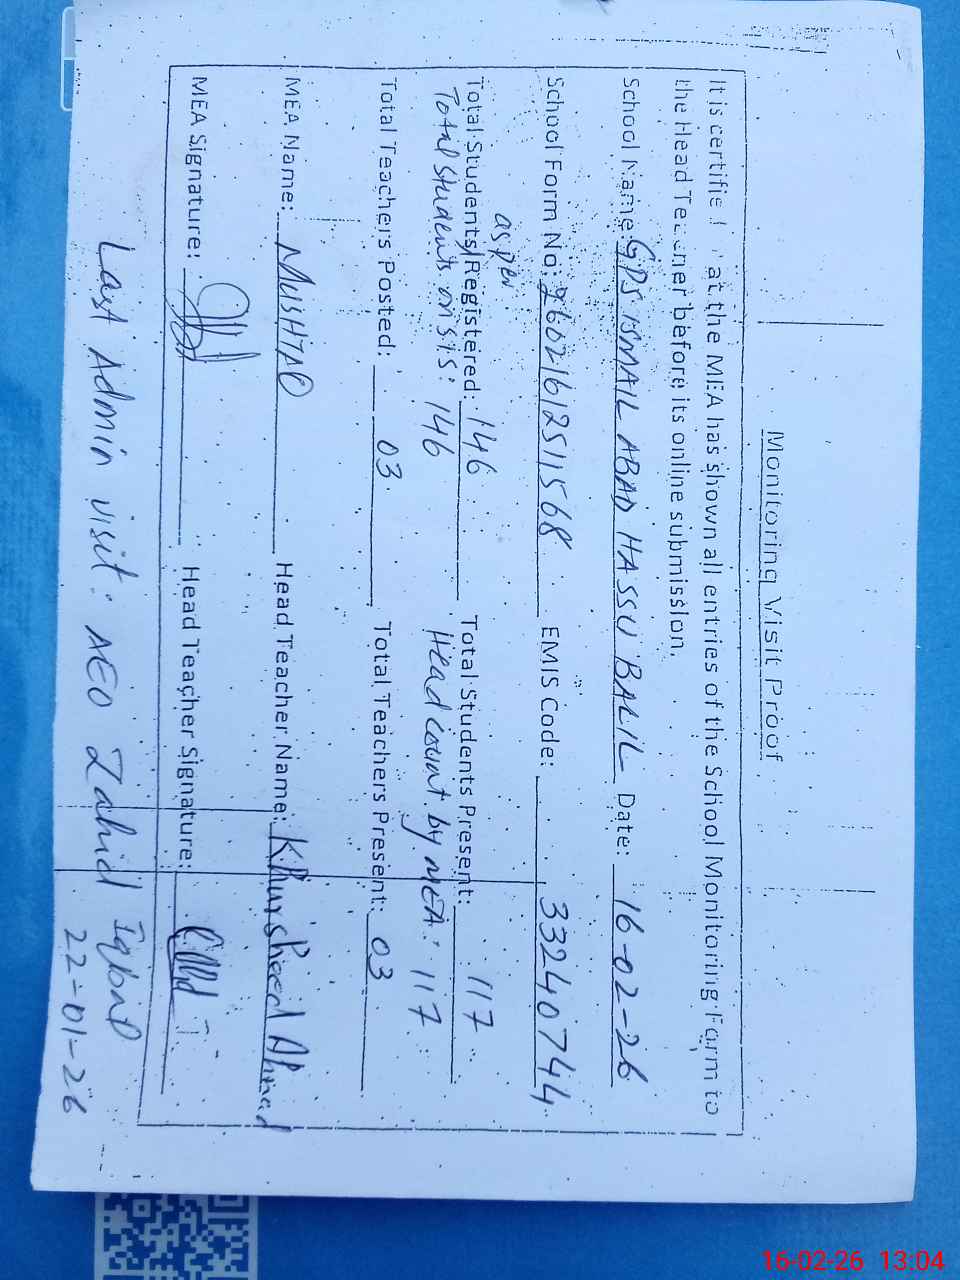 Monitoring Visit Proof
It is certified that the MEA has shown all entries of the School Monitoring Form to
the Head Teacher before its online submission.
School Name: GPS ISMAIL ABAD HASSU BALIL Date: 16-02-26
School Form No: 26021612511568 EMIS Code: 33240744
as per
Total Students Registered: 146 Total Students Present: 117
Total students on SIS: 146 Head count by MEA: 117
Total Teachers Posted: 03 Total Teachers Present: 03
MEA Name: MUSHTAQ Head Teacher Name: Khursheed Ahmad
MEA Signature: Head Teacher Signature:
Last Admin visit: AEO Zahid Iqbal
22-01-26
16-02-26 13:04